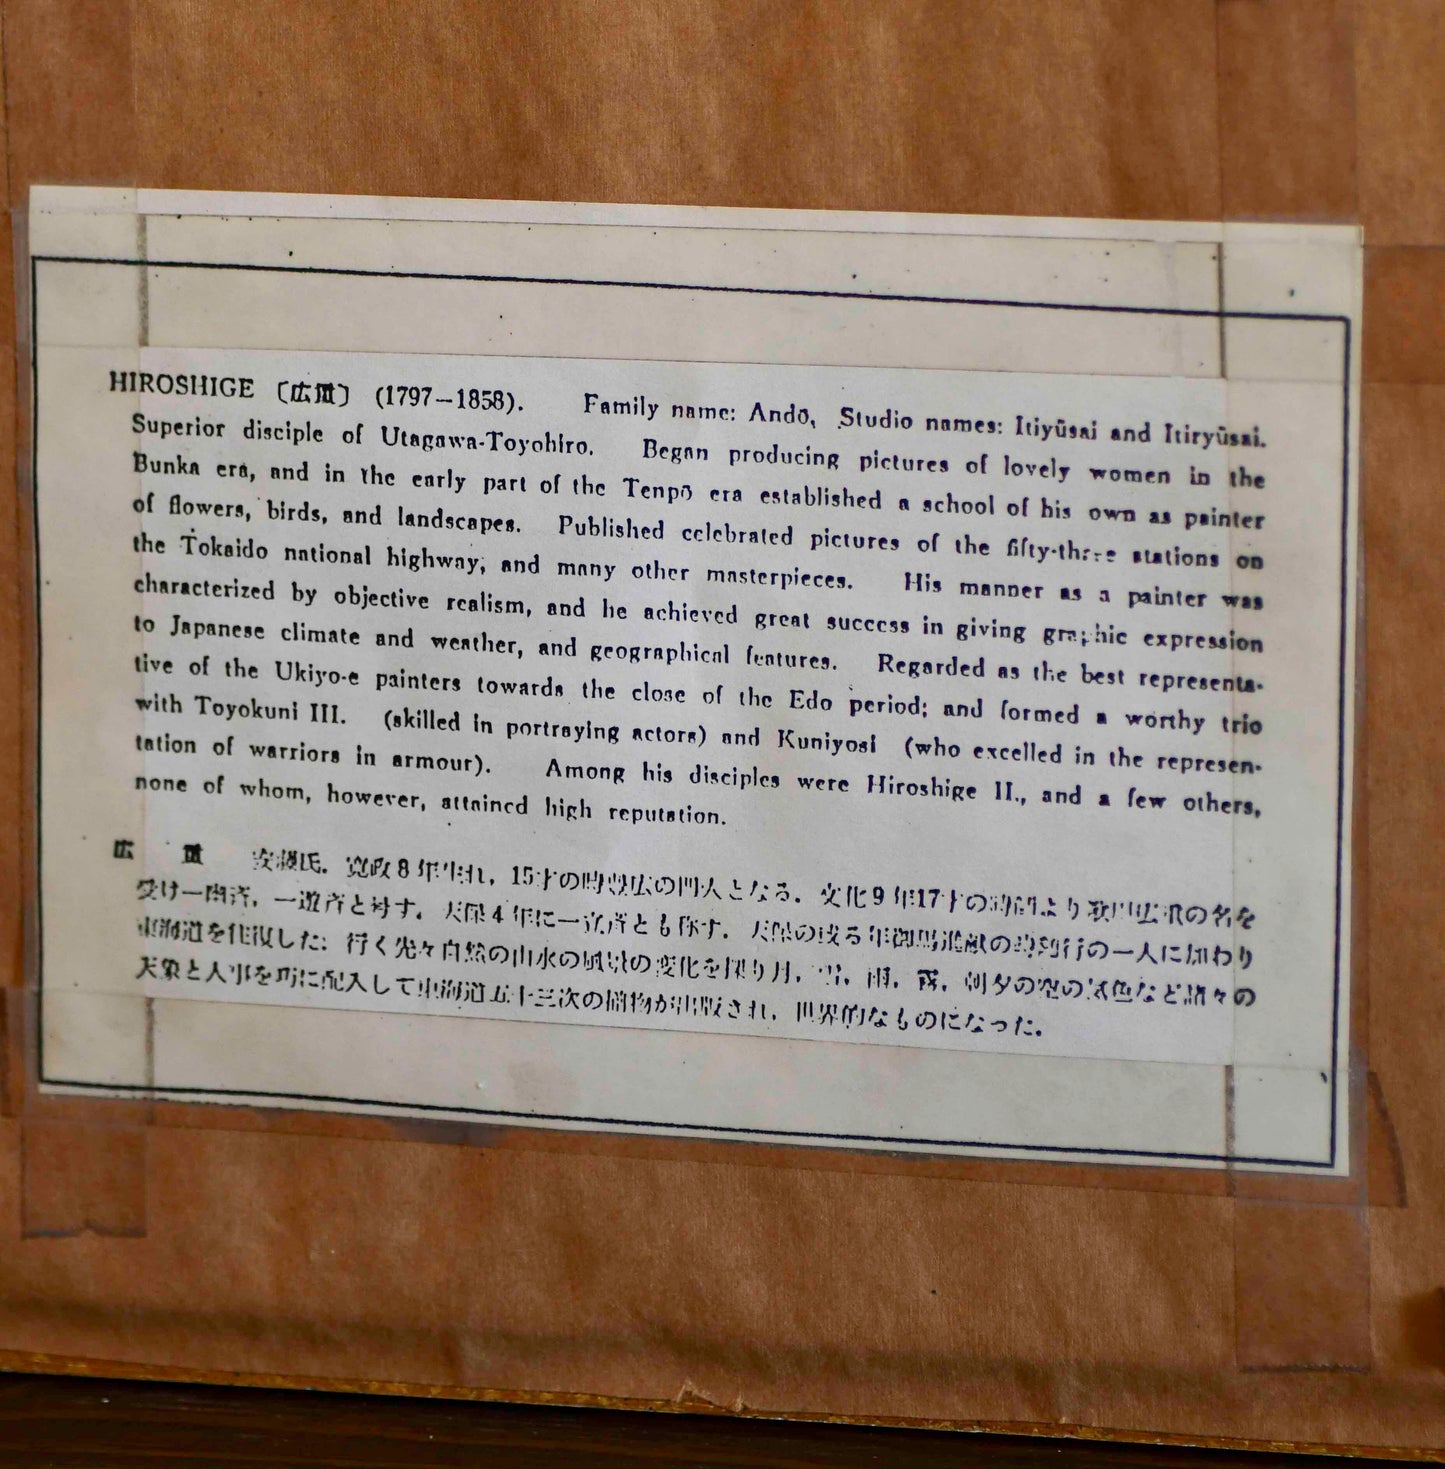 HIROSHIGE 〔広重〕 (1797–1858). Family name: Andō, Studio names: Itiyūsai and Itiryūsai.
Superior disciple of Utagawa-Toyohiro. Began producing pictures of lovely women in the
Bunka era, and in the early part of the Tenpō era established a school of his own as painter
of flowers, birds, and landscapes. Published celebrated pictures of the fifty-three stations on
the Tokaido national highway, and many other masterpieces. His manner as a painter was
characterized by objective realism, and he achieved great success in giving graphic expression
to Japanese climate and weather, and geographical features. Regarded as the best representa-
tive of the Ukiyo-e painters towards the close of the Edo period; and formed a worthy trio
with Toyokuni III. (skilled in portraying actors) and Kuniyosi (who excelled in the represen-
tation of warriors in armour). Among his disciples were Hiroshige II., and a few others,
none of whom, however, attained high reputation.
広 重 安藤氏. 寛政8年生れ, 15才の時豊広の門人となる. 文化9年17才の時 より歌川広重の名を
受け一幽斉, 一遊斉と号す. 天保4年に一立斉とも称す. 天保の或る年御馬進献の 行の一人に加わり
東海道を往復した: 行く先々自然の山水の風景の変化を探り月, 雪, 雨, 霧, 朝夕の空の気色など諸々の
天象と人事を巧に配入して東海道五十三次の 物が出版され, 世界的なものになった.